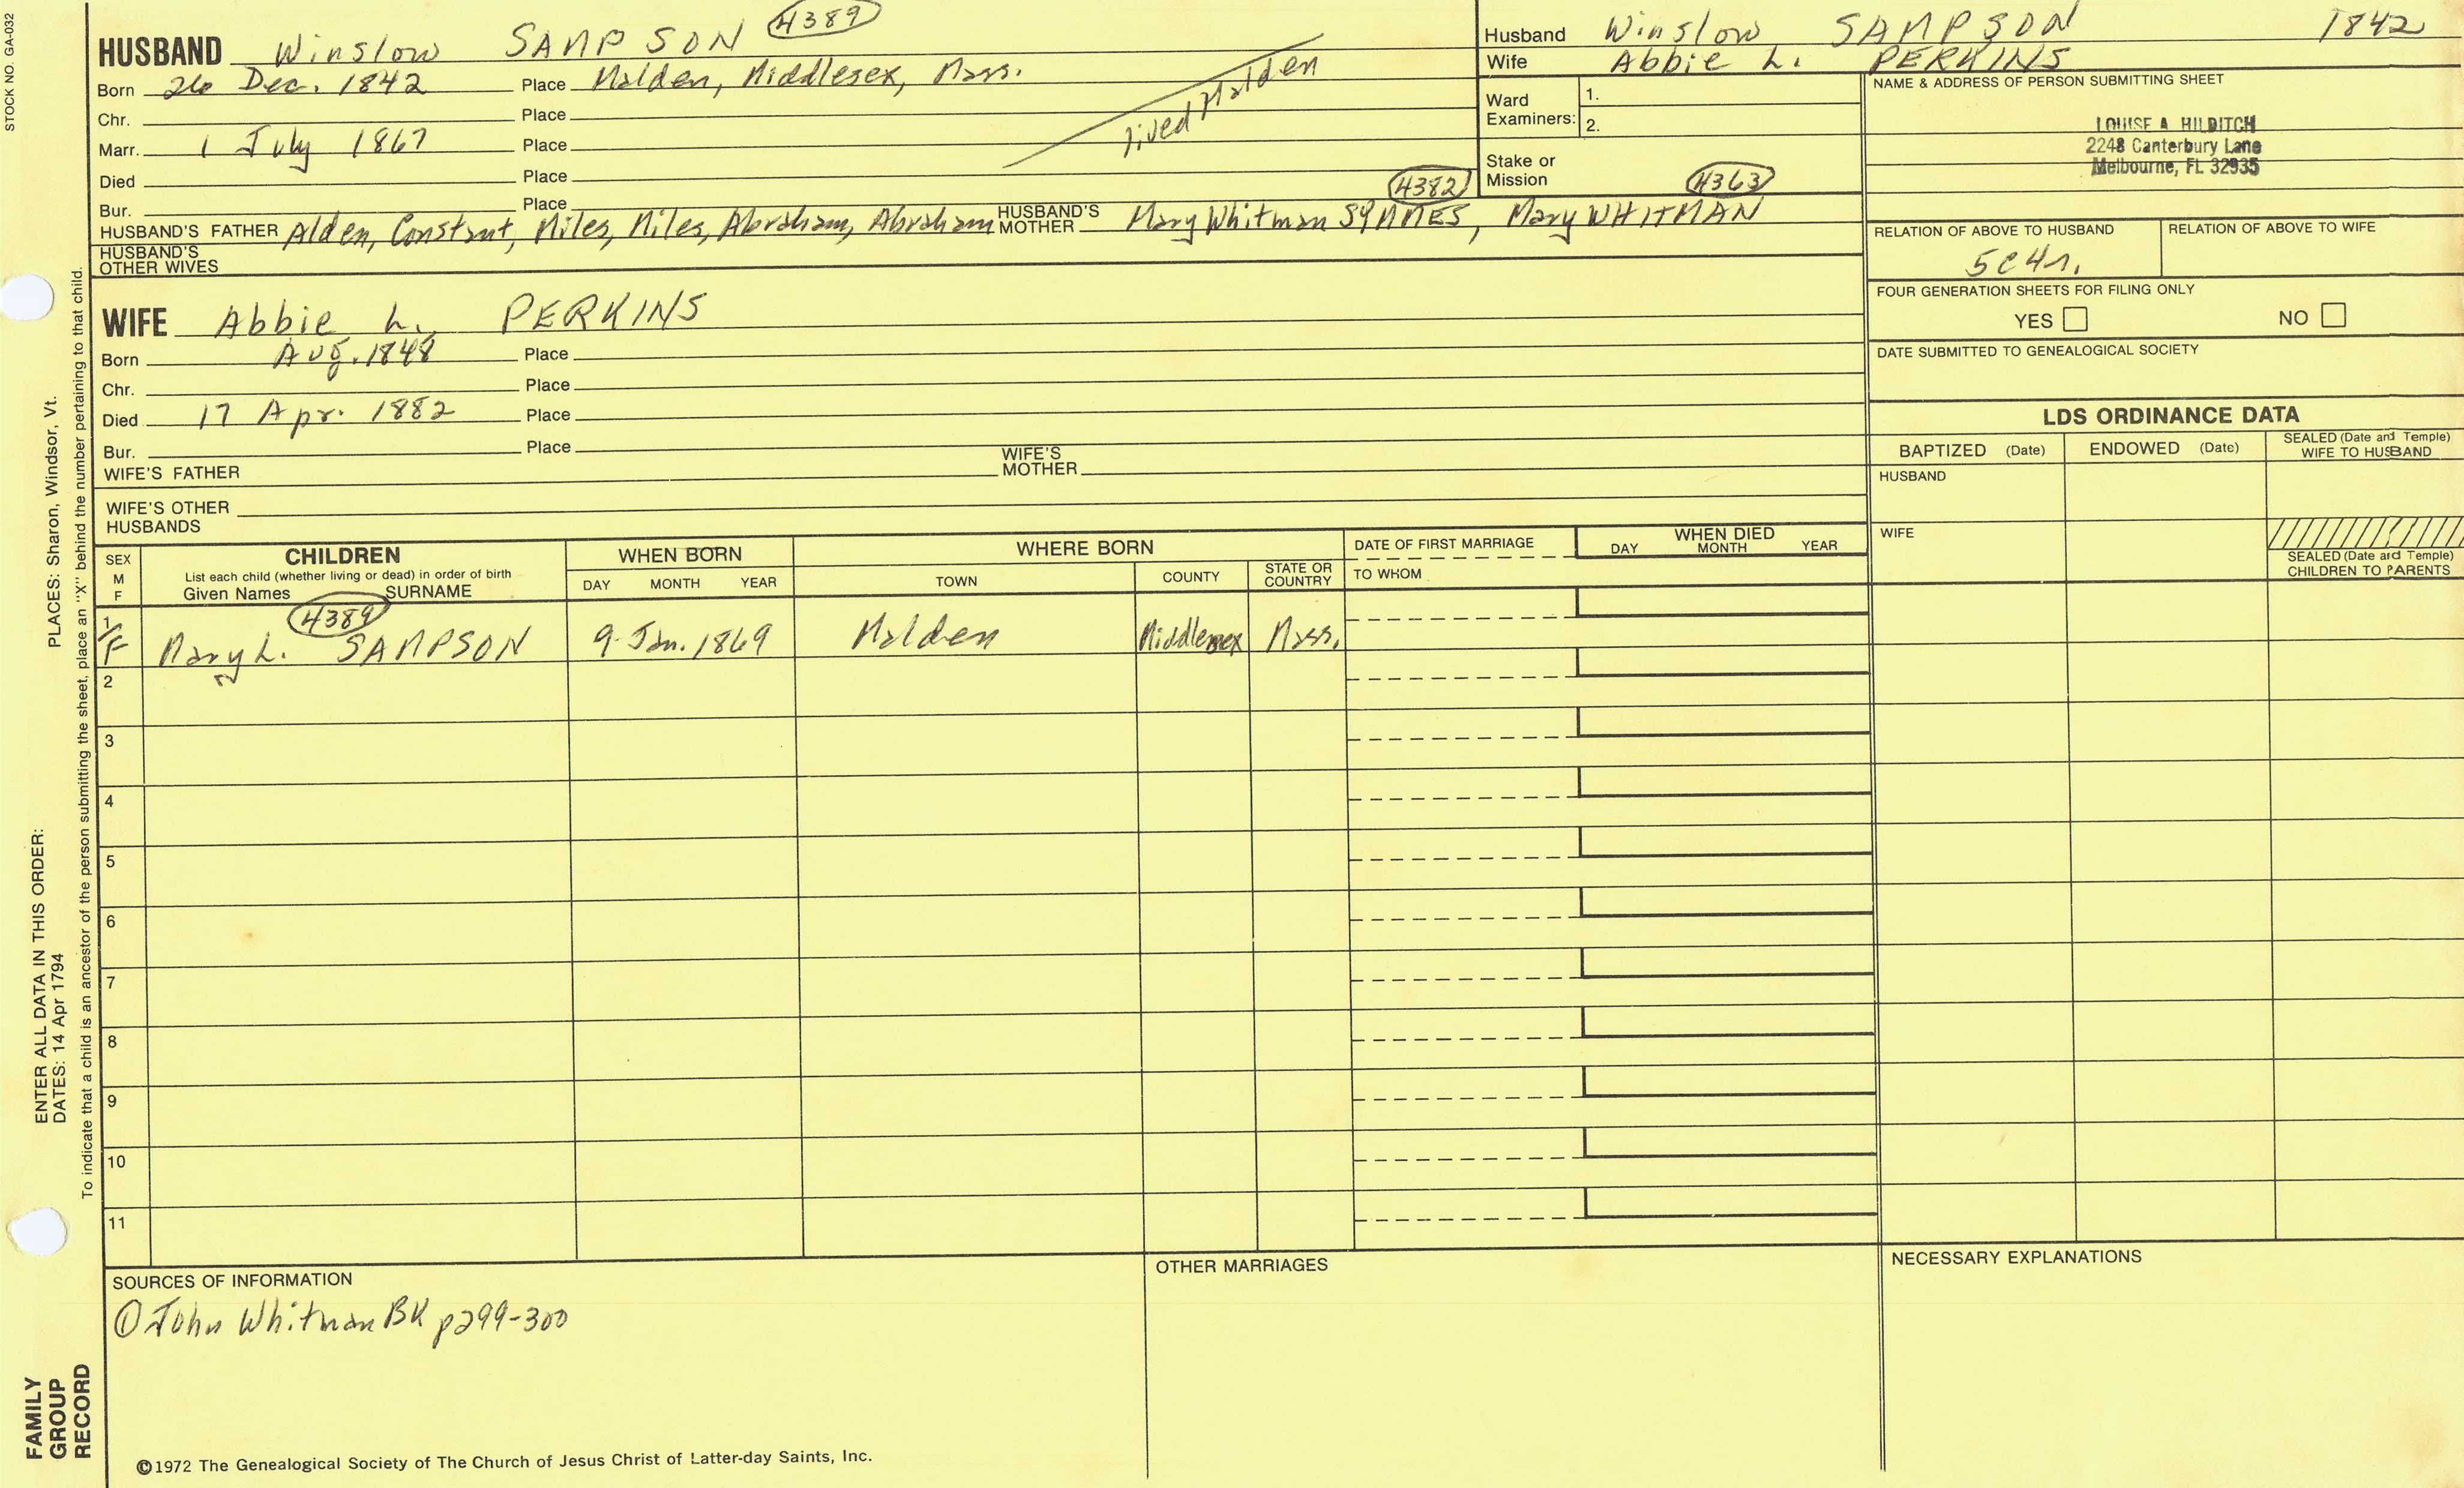 STOCK NO. GA-032
HUSBAND Winslow SAMPSON 4389
Born 26 Dec. 1842 Place Malden, Middlesex, Mass.
Chr. Place
Marr. 1 July 1867 Place
lived Malden
Died Place
Bur. Place
HUSBAND'S FATHER Alden, Constant, Miles, Miles, Abraham, Abraham HUSBAND'S MOTHER Mary Whitman SYMMES, 4382 Mary WHITMAN 4363
HUSBAND'S OTHER WIVES
Husband Winslow SAMPSON 1842
Wife Abbie L. PERKINS
Ward Examiners: 1.
2.
Stake or Mission
NAME & ADDRESS OF PERSON SUBMITTING SHEET
LOUISE A HILDITCH
2248 Canterbury Lane
Melbourne, FL 32935
RELATION OF ABOVE TO HUSBAND RELATION OF ABOVE TO WIFE
5c4r.
FOUR GENERATION SHEETS FOR FILING ONLY
YES NO
DATE SUBMITTED TO GENEALOGICAL SOCIETY
WIFE Abbie L. PERKINS
Born Aug. 1848 Place
Chr. Place
Died 17 Apr. 1882 Place
Bur. Place
WIFE'S FATHER WIFE'S MOTHER
WIFE'S OTHER HUSBANDS
LDS ORDINANCE DATA
BAPTIZED (Date) ENDOWED (Date) SEALED (Date and Temple) WIFE TO HUSBAND
HUSBAND
WIFE
SEALED (Date and Temple) CHILDREN TO PARENTS
SEX M F CHILDREN List each child (whether living or dead) in order of birth Given Names SURNAME
WHEN BORN DAY MONTH YEAR
WHERE BORN TOWN COUNTY STATE OR COUNTRY
DATE OF FIRST MARRIAGE TO WHOM
WHEN DIED DAY MONTH YEAR
4389
1 F Mary L. SAMPSON 9 Jan. 1869 Malden Middlesex Mass.
2
3
4
5
6
7
8
9
10
11
SOURCES OF INFORMATION
① John Whitman BK p299-300
OTHER MARRIAGES
NECESSARY EXPLANATIONS
©1972 The Genealogical Society of The Church of Jesus Christ of Latter-day Saints, Inc.
FAMILY GROUP RECORD
ENTER ALL DATA IN THIS ORDER:
DATES: 14 Apr 1794
PLACES: Sharon, Windsor, Vt.
To indicate that a child is an ancestor of the person submitting the sheet, place an "X" behind the number pertaining to that child.